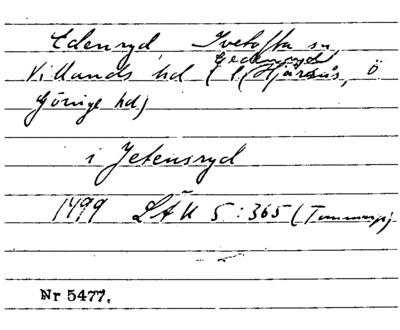 Edenryd, Ivetofta sn,
Gedenryd
Villands hd ( l Hjärsås, Ö
Göinge hd)
i Jetensryd
1499 LÄU 5:365 (Tommarp)
Nr 5477.